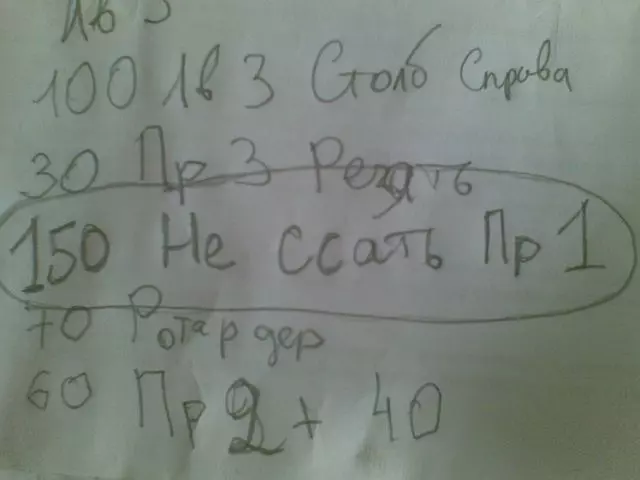 Лв 3
100 Лв 3 Столб Справа
30 Пр 3 Резать
150 Не ссать Пр 1
70 Ротардер
60 Пр 2 + 40